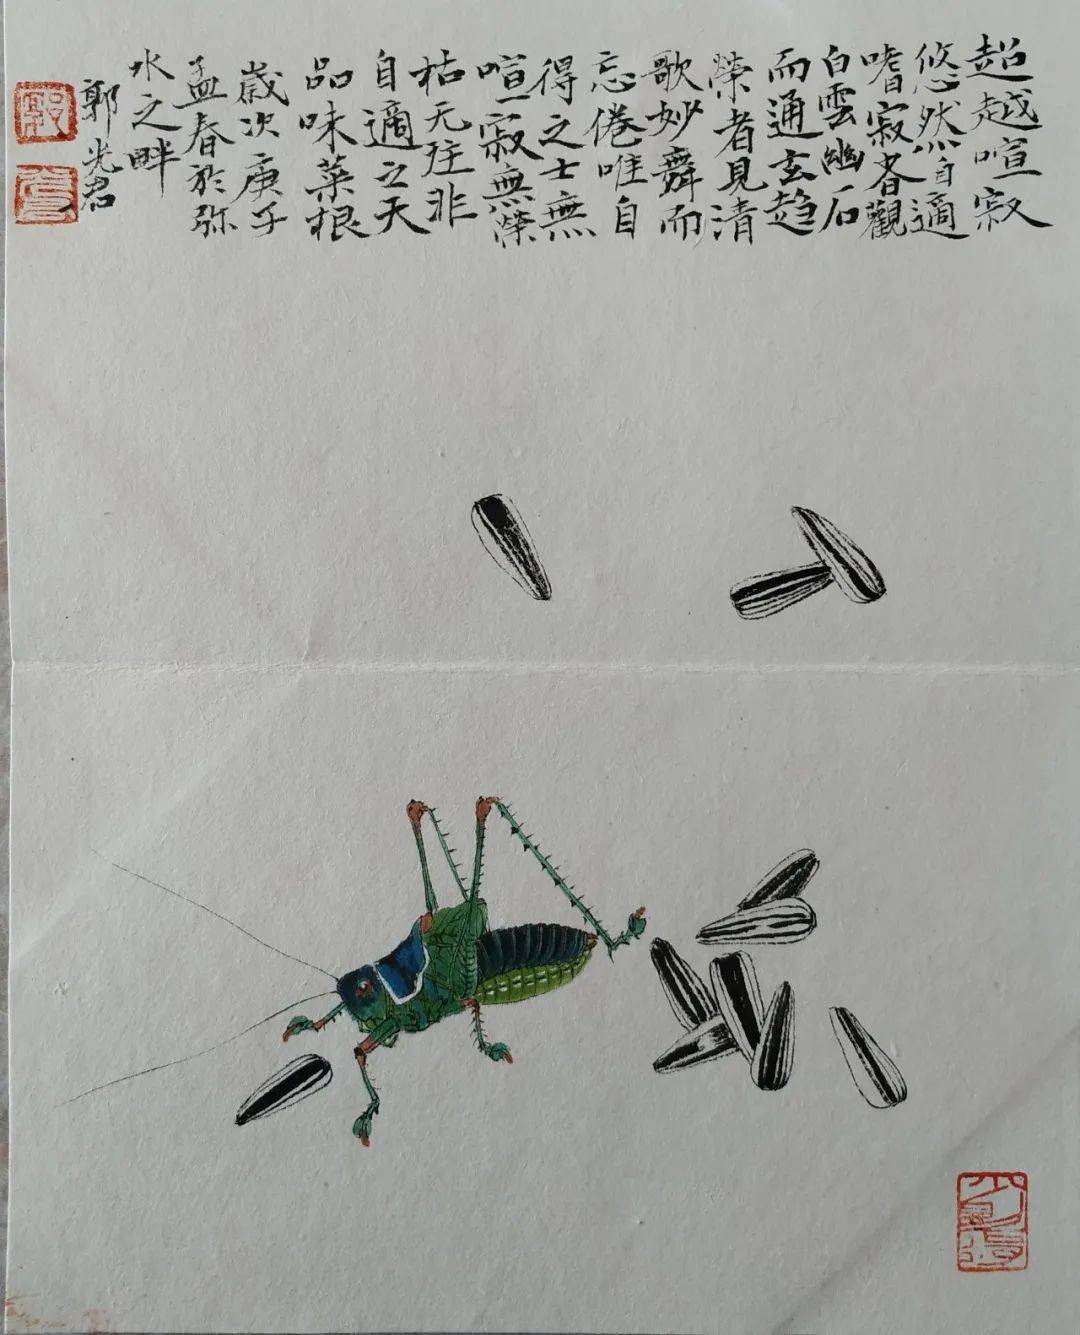 超越喧寂
悠然自適
嗜寂者觀
白雲幽石
而通玄趋
榮者見清
歌妙舞而
忘倦唯自
得之士無
喧寂無榮
枯无往非
自適之天
品味菜根
歲次庚子
孟春於弥
水之畔
郭光君